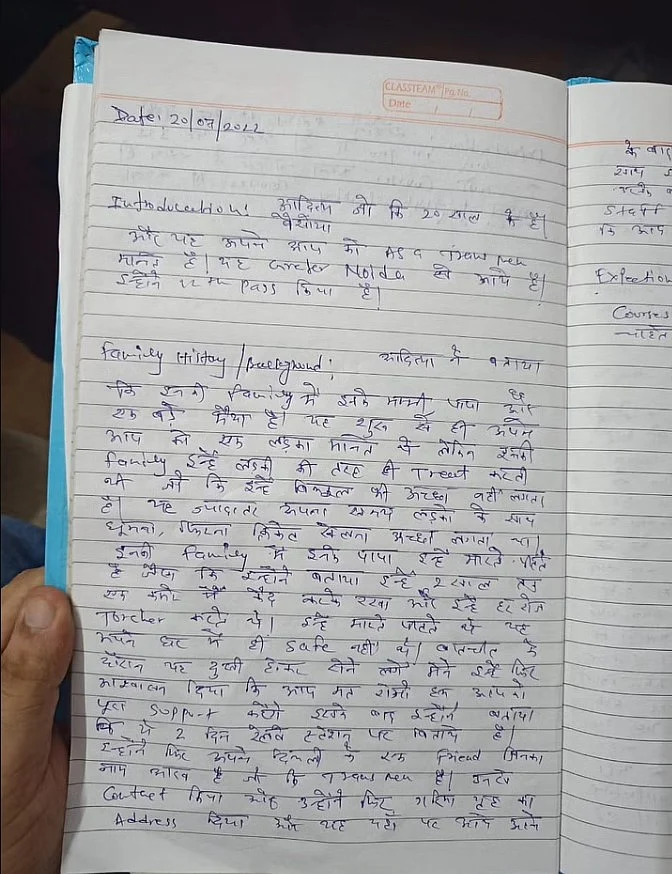 CLASSTEAM Pg.No.
Date / /
Date: 20/07/2022
Introducation: आदित्य जो कि 20 साल के है|
और यह अपने आप को As a Trans men
मानते है| यह Greter Noida से आये है|
इन्होंने 12th pass किया है|
Family History/Background: आदित्या ने बताया
कि इनकी family में इनके मम्मी, पापा और
एक बड़े भैया है| यह शुरू से ही अपने
आप को एक लड़का मानते थे लेकिन इनकी
family इन्हें लड़की की तरह ही Treat करती
थी जो कि इन्हें बिल्कुल भी अच्छा नहीं लगता
है| यह ज्यादातर अपना समय लड़को के साथ
घूमना, फिरना क्रिकेट खेलना अच्छा लगता था|
इनकी family में इनके पापा इन्हें मारते-पीटते
है जैसा कि इन्होंने बताया इन्हें 2 साल तक
एक कमरे में कैद करके रखा और इन्हें हर रोज
Torcher करते थे| इन्हें मारते पीटते थे यह
अपने घर में ही safe नहीं थे| बातचीत के
दौरान यह दुखी होकर रोने लगे मैंने इन्हें फिर
आश्वासन दिया कि आप मत रोओ हम आपको
पूरा support करेंगे इसके बाद इन्होंने बताया
कि ये 2 दिन रेलवे स्टेशन पर बिताये है|
इन्होंने फिर अपने दिल्ली के एक Friend जिनका
नाम है जो कि Trans men है| उनसे
Contect किया और उन्होंने फिर गरिमा गृह का
Address दिया और यह यहाँ पर आये आने
के बाद
साथ
Staff
कि आप
Expection
Courses
चाहते